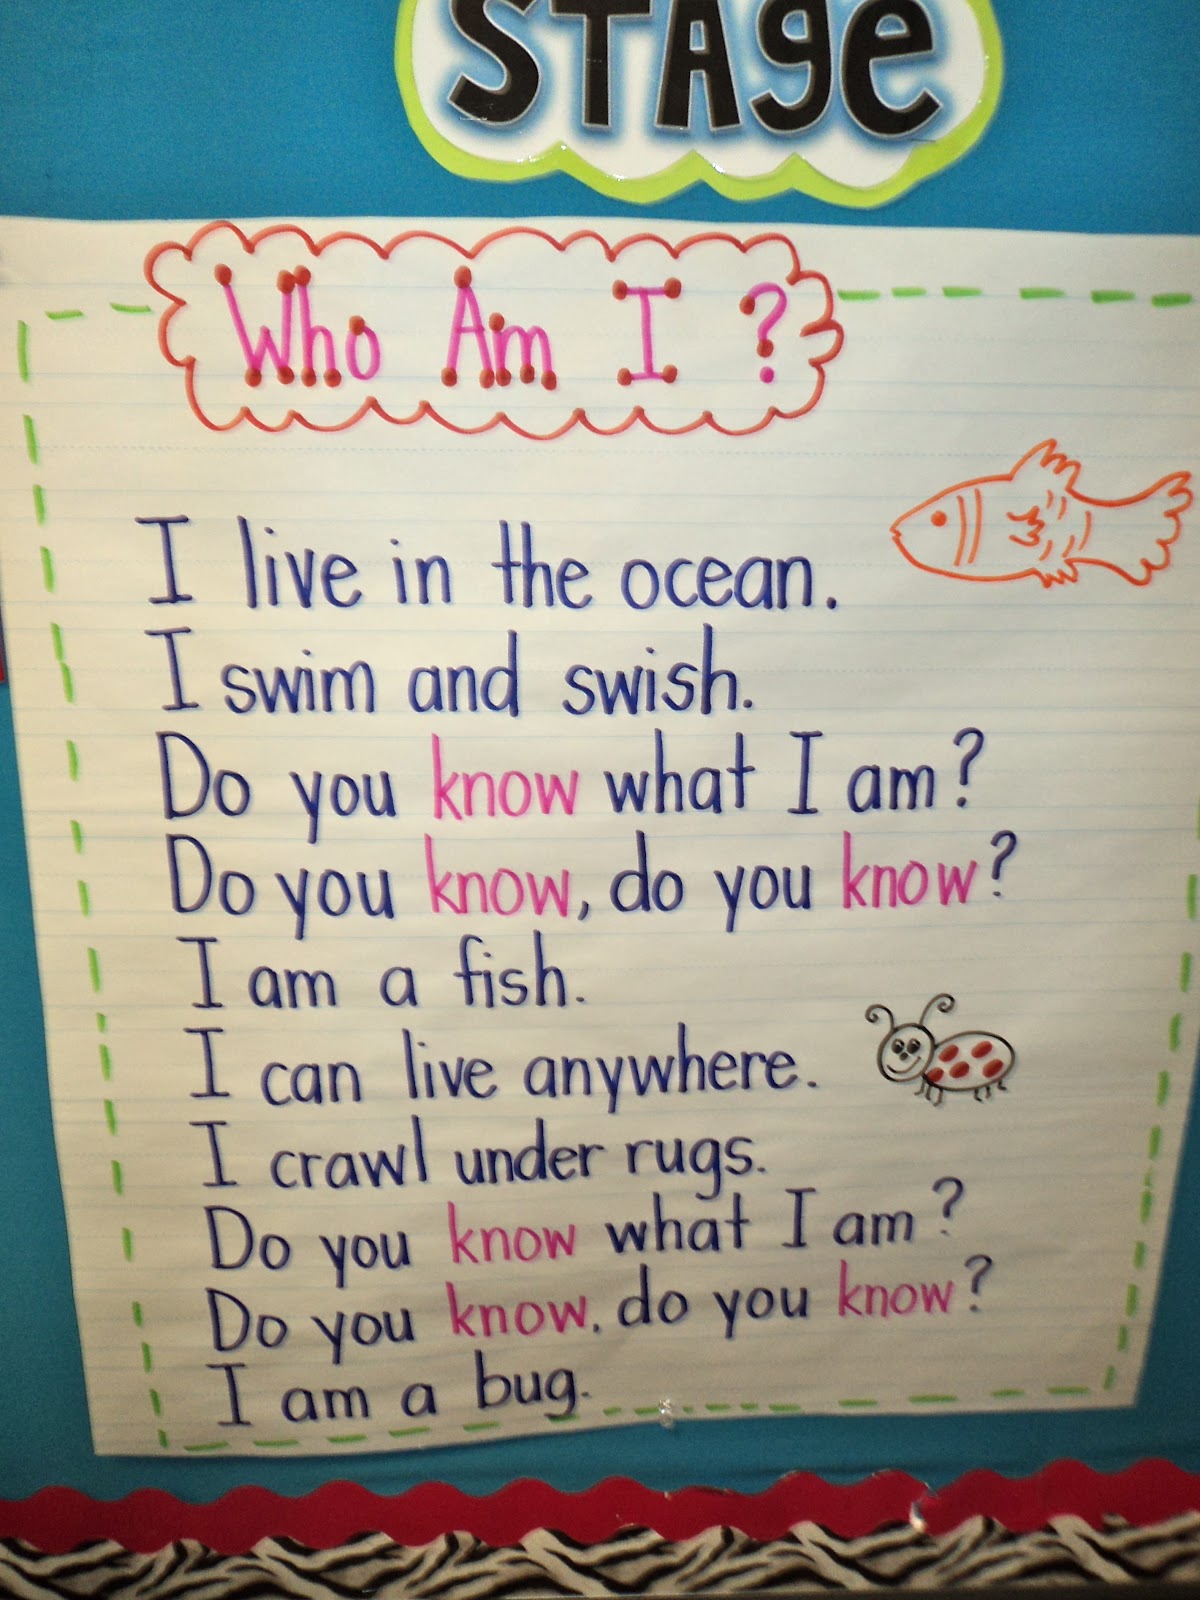 STAge
Who Am I ?
I live in the ocean.
I swim and swish.
Do you know what I am?
Do you know, do you know?
I am a fish.
I can live anywhere.
I crawl under rugs.
Do you know what I am?
Do you know, do you know?
I am a bug.